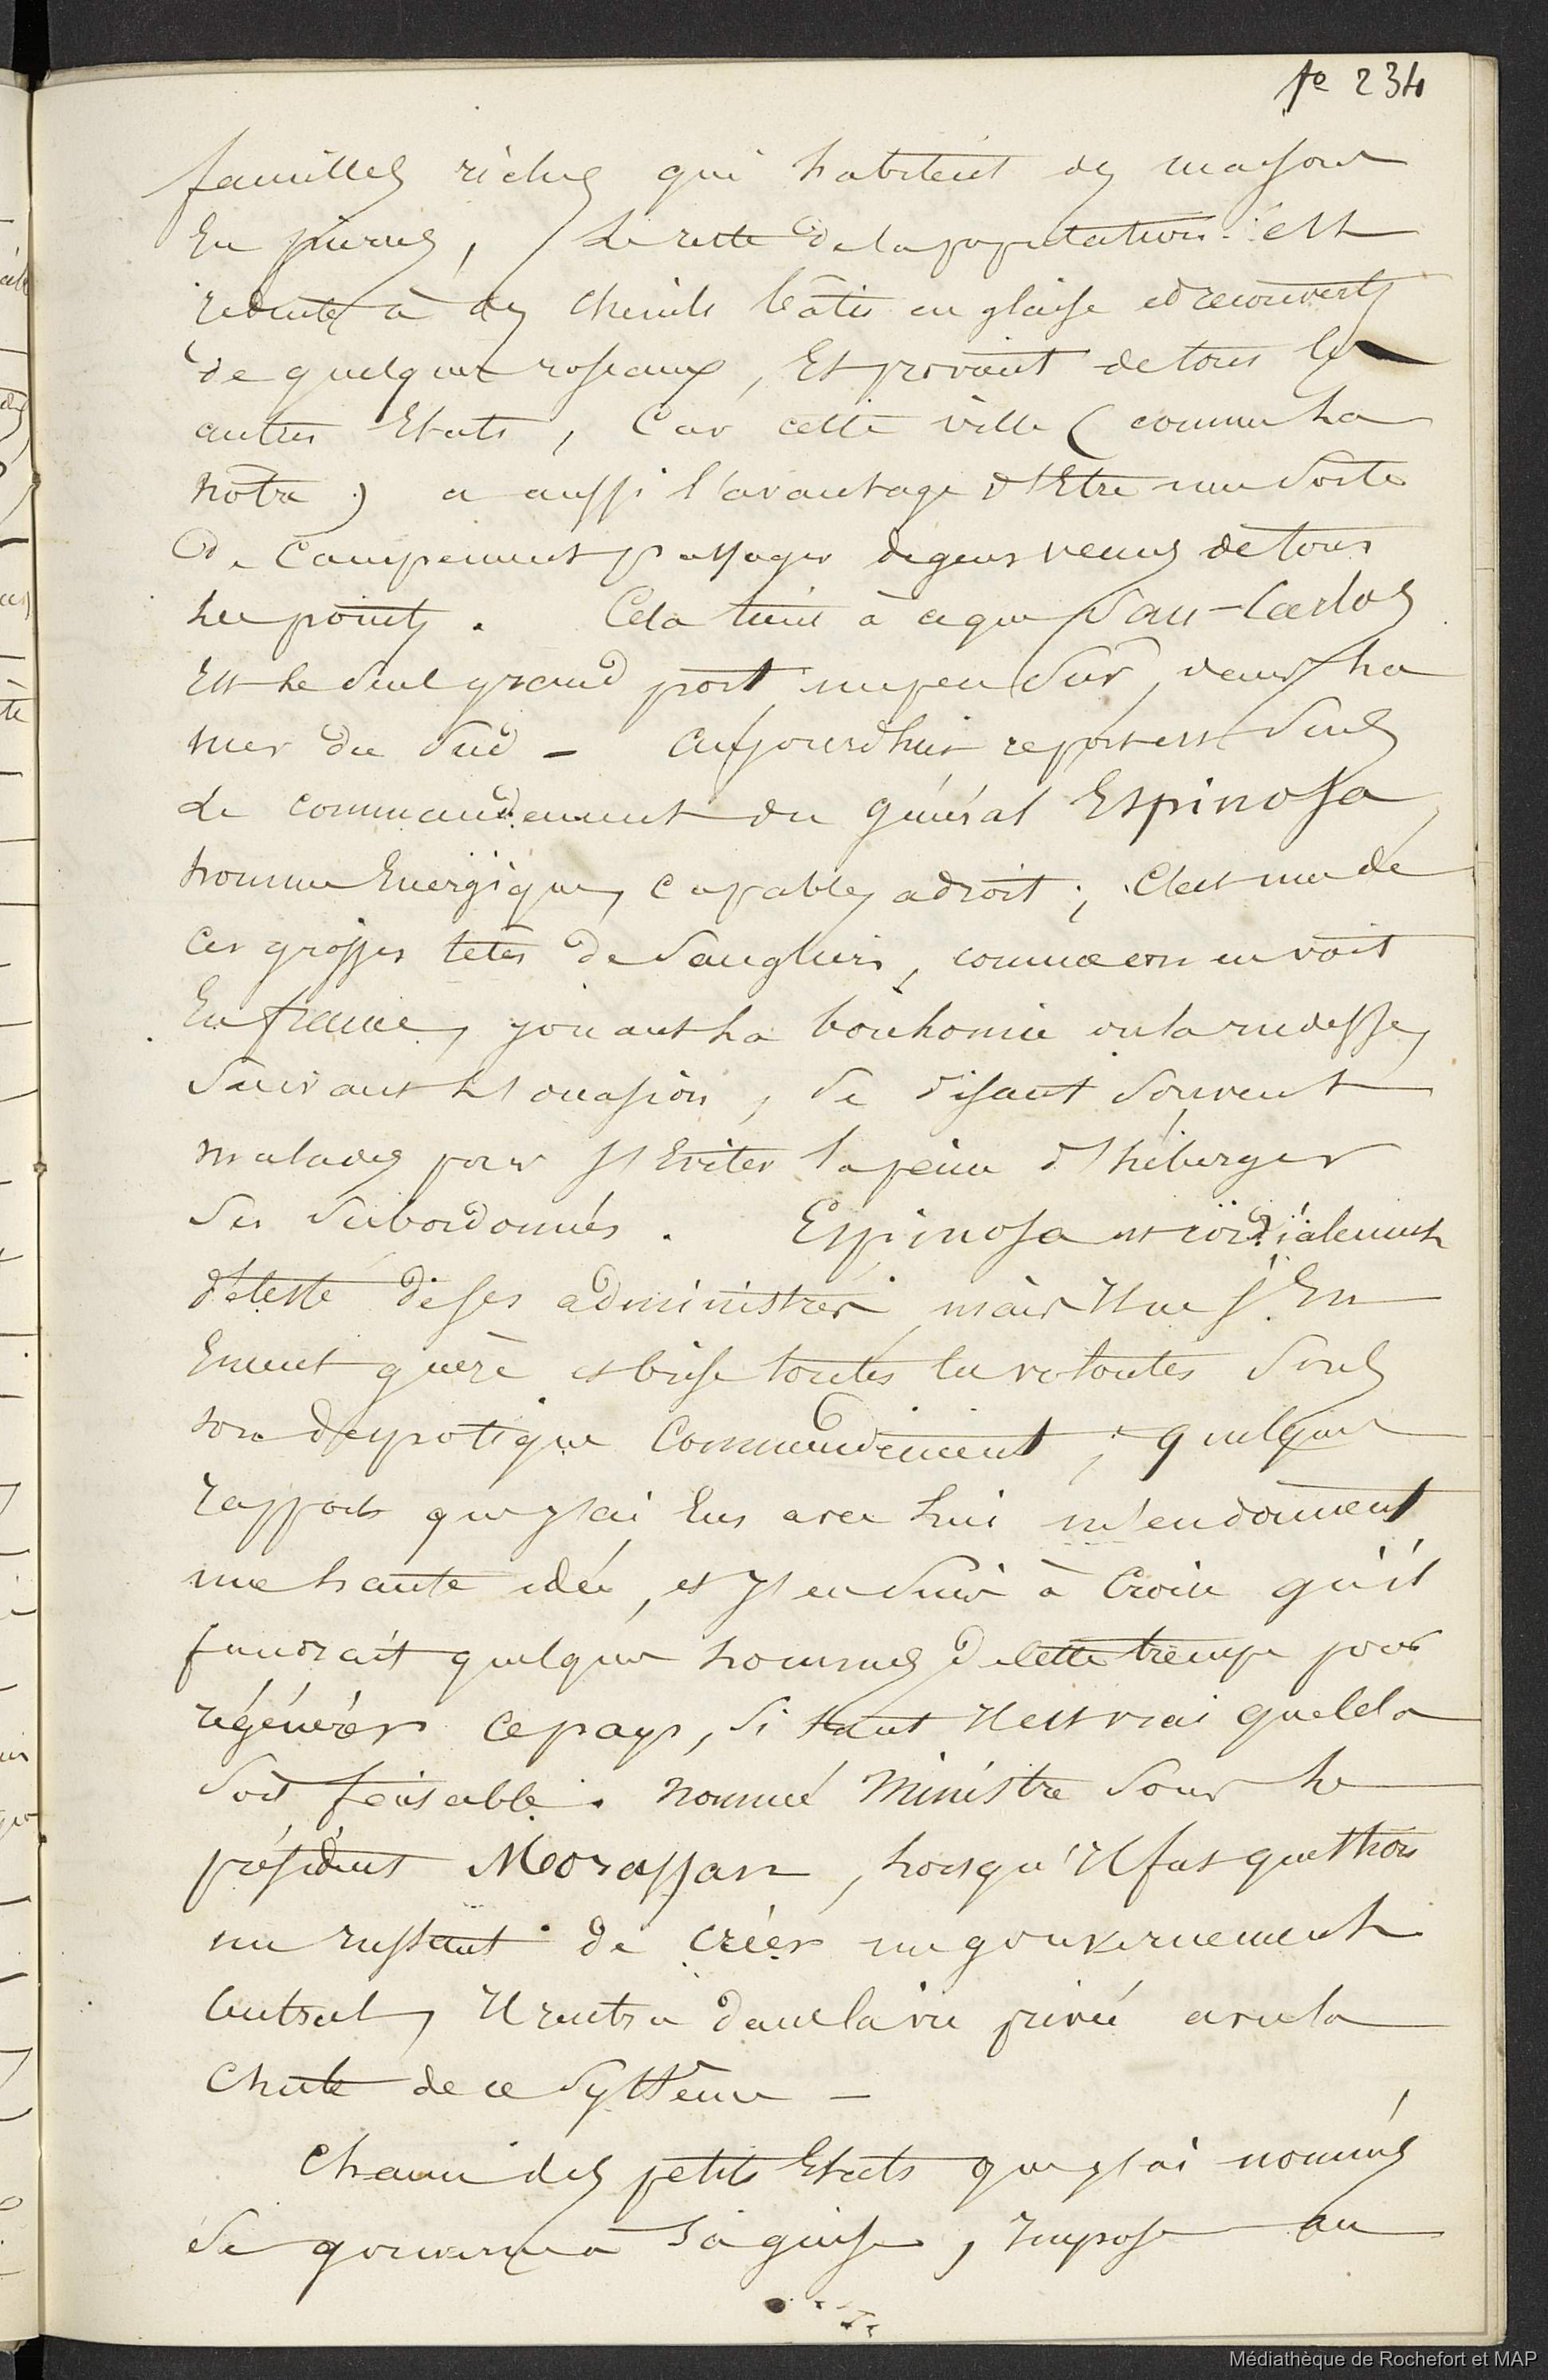 fo 234
familles riches qui habitent des maisons
En pierres, Le reste de la population est
réduite à des chenils bâtis en glaise et recouverts
de quelques roseaux, Et provient de tous les
autres Etats, Car cette ville (comme La
nôtre) a aussi l'avantage d'Etre une Sorte
de Campement passager de gens venus de tous
Les points. Cela tient à ce que San-Carlos
Est le Seul grand port, un peu Sûr, dans La
mer du Sud - aujourd'hui ce port est Sous
Le commandement du général Espinosa,
homme Energique, capable, adroit; C'est une de
Ces grosses têtes de Sangliers, comme on en voit
En france, jouant La bonhomie ou la rudesse,
Suivant L'occasion, Se disant Souvent
malade, pour s'Eviter la peine d'héberger
Ses Subordonnés. Espinosa est cordialement
détesté de ses administrés, mais Il ne s'En
Emeut guère et brise toutes les volontés Sous
son despotique Commandement; quelques
rapports que j'ai Eus avec Lui m'en donnent
une haute idée, et j'en Suis à Croire qu'il
faudrait quelques hommes de cette trempe pour
régénérer ce pays, Si tant Il est vrai que Cela
Soit faisable. nommé Ministre Sous Le
président Morassan, Lorsqu'Il fut question
un instant de créer un gouvernement
Central, Il rentra dans la vie privée avec la
Chute de ce Système -
Chacun des petits Etats que j'ai nommés
Se gouverne à Sa guise, Impose au
Médiathèque de Rochefort et MAP